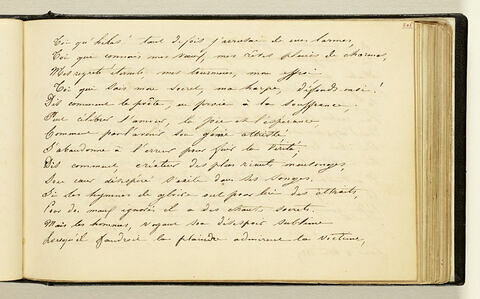 Toi qu'hélas! tant de fois j'arrosai de mes larmes,
Toi que connais mes maux, mes rêves pleins de charmes,
Mes regrets, mes tourmens, mon effroi
Toi qui sais mon secret, ma harpe, défends-moi!
Dis comment le poëte, en proie à la souffrance,
Peut célébrer l'amour, la joie et l'espérance
Comment par l'avenir son génie attristé
S'abandonne à l'erreur pour fuir la vérité,
Dis comment, créateur des plus riants mensonges,
Son cœur désespéré s'exile dans ses songes
Si les hymnes de gloire ont pour lui des attraits,
Pour des maux ignorés il a des chants secrets.
Mais les hommes, voyant son désespoir sublime
Lorsqu'il faudroit la plaindre admirent la victime,